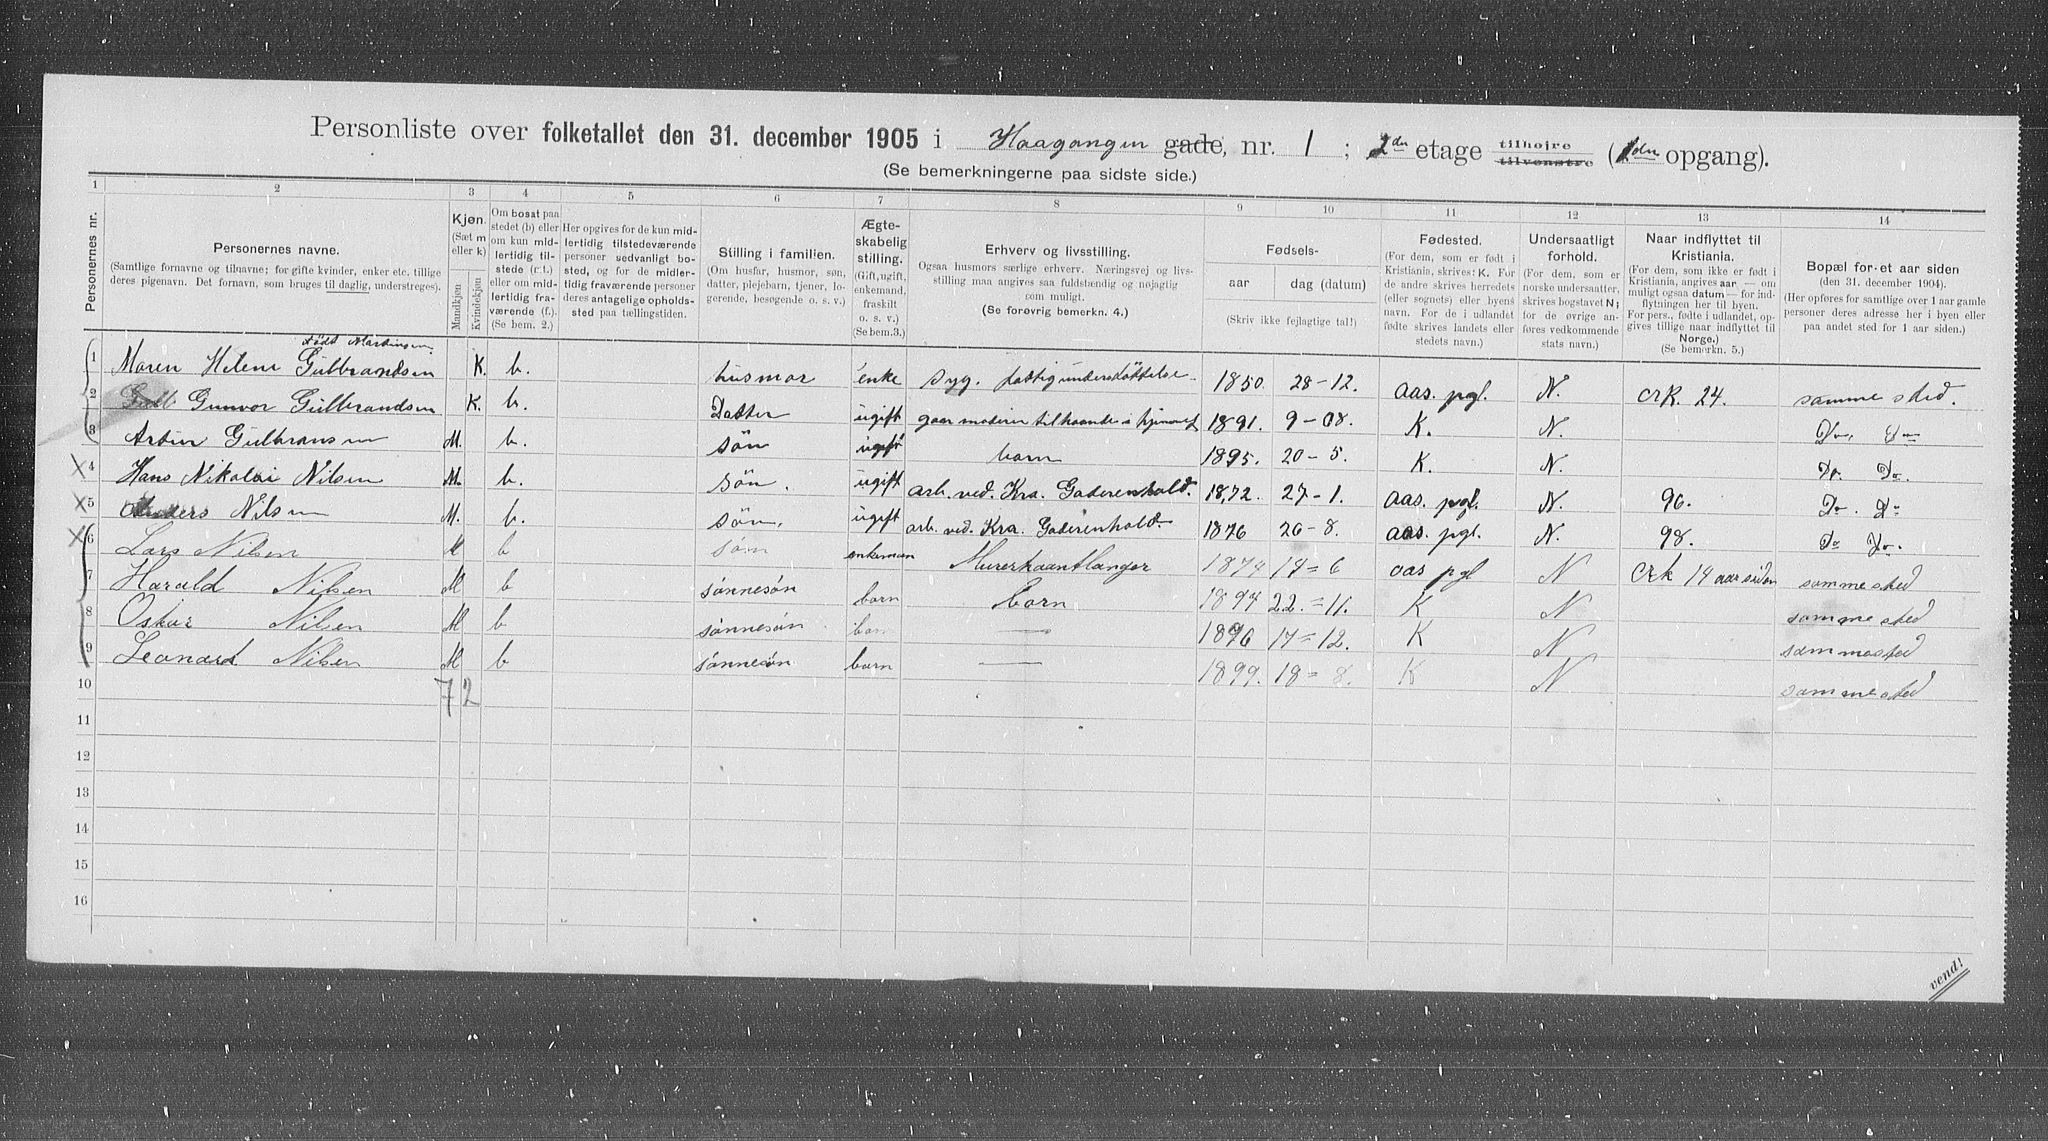 Personliste over folketallet den 31. december 1905 i Haagangen gade, nr. 1 ; 2den etage tilhøjre tilvenstre (1den opgang).
(Se bemerkningerne paa sidste side.)
1 2 3 4 5 6 7 8 9 10 11 12 13 14
Personernes nr.
Personernes navne.
(Samtlige fornavne og tilnavne; for gifte kvinder, enker etc. tillige deres pigenavn. Det fornavn, som bruges til daglig, understreges).
Kjøn.
(Sæt m eller k)
Mandkjøn
Kvindekjøn
Om bosat paa stedet (b) eller om kun midlertidig tilstede (r.t.) eller om midlertidig fraværende (f.) (Se bem. 2.)
Her opgives for de kun midlertidig tilstedeværende personer sedvanligt bosted, og for de midlertidig fraværende personer deres antagelige opholdssted paa tællingstiden.
Stilling i familien.
(Om husfar, husmor, søn, datter, plejebarn, tjener, logerende, besøgende o. s. v.)
Ægteskabelig stilling.
(Gift, ugift, enkemand, fraskilt o. s. v.) (Se bem. 3.)
Erhverv og livsstilling.
Ogsaa husmors særlige erhverv. Næringsvej og livsstilling maa angives saa fuldstændig og nøjagtig som muligt.
(Se forøvrig bemerkn. 4.)
Fødsels-
aar
dag (datum)
(Skriv ikke fejlagtige tal!)
Fødested.
(For dem, som er født i Kristiania, skrives: K. For de andre skrives herredets (eller sognets) eller byens navn. For de i udlandet fødte skrives landets eller stedets navn.)
Undersaatligt forhold.
(For dem, som er norske undersaatter, skrives bogstavet N; for de øvrige anføres vedkommende stats navn.)
Naar indflyttet til Kristiania.
(For dem, som ikke er født i Kristiania, angives aar — om muligt ogsaa datum — for indflytningen her til byen. For pers., fødte i udlandet, opgives tillige naar indflyttet til Norge.)
(Se bemerkn. 5.)
Bopæl for et aar siden
(den 31. december 1904).
(Her opføres for samtlige over 1 aar gamle personer deres adresse her i byen eller paa andet sted for 1 aar siden.)
født Martinsen
1 Maren Helene Gulbrandsen K. b. husmor enke syg. fattigunderstöttelse 1850. 28-12. aas. pgl. N. crk. 24. samme sted.
2 Gunvor Gulbrandsen K. b. Datter ugift gaar moderen tilhaande i hjemmet 1891. 9-08. K. N. Do. Do
3 Gulbransen M. b. sön ugift barn 1895. 20-5. K. N. Do. Do.
4 Hans Nikolai Nilsen M. b. sön. ugift arb. ved. Kra. Gaderenhold. 1872. 27-1. aas. pgl. N. 96. Do. Do
5 Anders Nilsen M. b. sön. ugift arb. ved. Kra. Gaderenhold. 1876 26-8. aas. pgl. N. 98. Do Do.
6 Lars Nilsen M b søn enkeman Murerhaantlanger 1874 14=6 aas pgl N crk 14 aar siden samme sted
7 Harald Nilsen M b sønnesøn barn barn 1894 22.=11. K N samme sted
8 Oskar Nilsen M b sønnesøn barn — 1896 17=12. K N sammested
9 Leonard Nilsen M b sønnesøn barn — 1899. 18=8. K N sammested
10 7 2
11
12
13
14
15
16
vend!